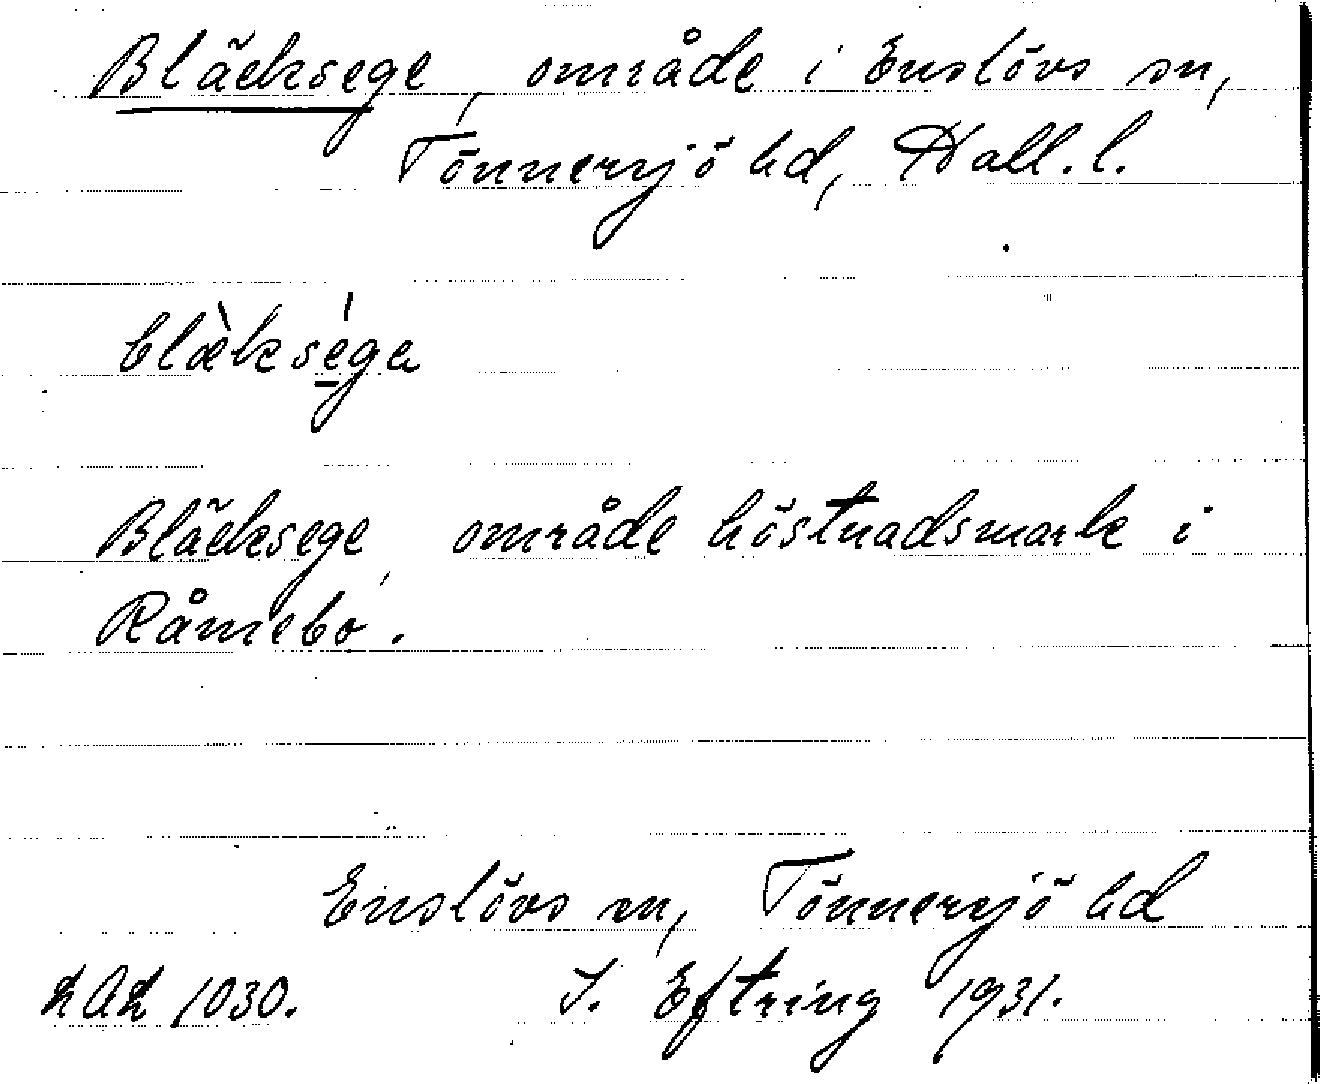 Bläcksege, område i Enslövs sn,
Tönnersjö hd, Hall. l.
blæ̀kség̱a
Bläcksege, område höstnadsmark i
Råmebo.
Enslövs sn, Tönnersjö hd
LAL 1030. I. Eftring 1931.